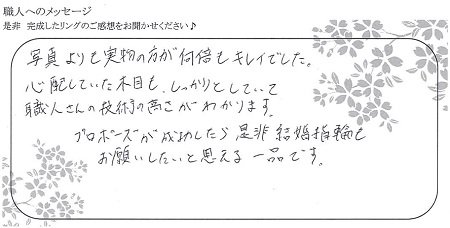 職人へのメッセージ
是非 完成したリングのご感想をお聞かせください♪
写真よりも実物の方が何倍もキレイでした。
心配していた木目も、しっかりとしていて
職人さんの技術の高さがわかります。
プロポーズが成功したら是非結婚指輪も
お願いしたいと思える一品です。